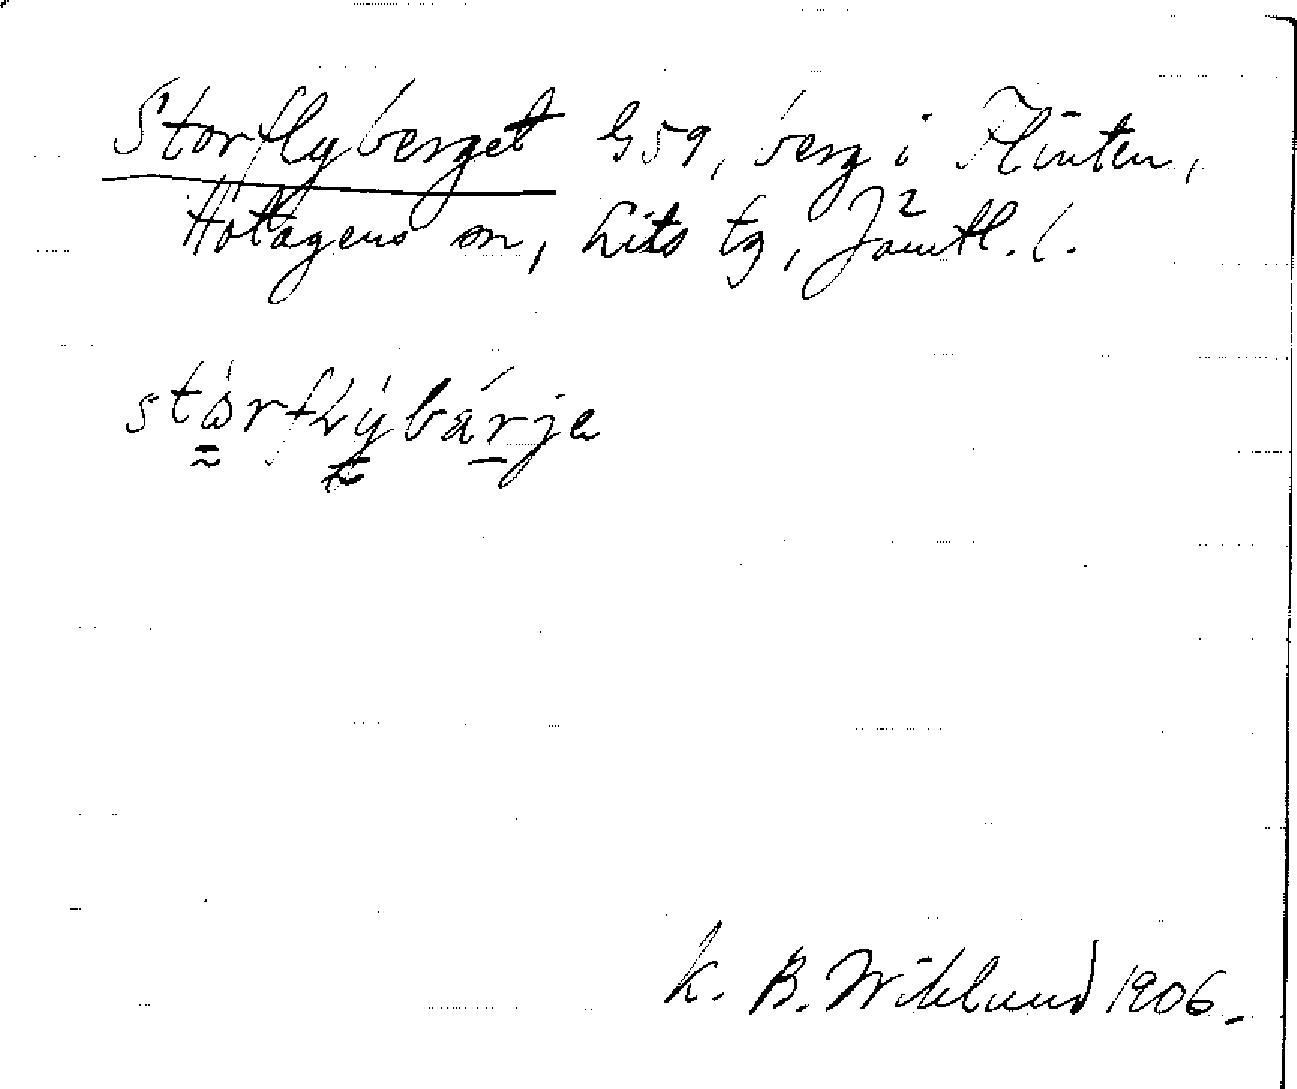 Storflyberget G59, berg i Flinten,
Hotagens sn, Lits tg, Jämtl. l.
2
stórflýbárje
K. B. Wiklund 1906.